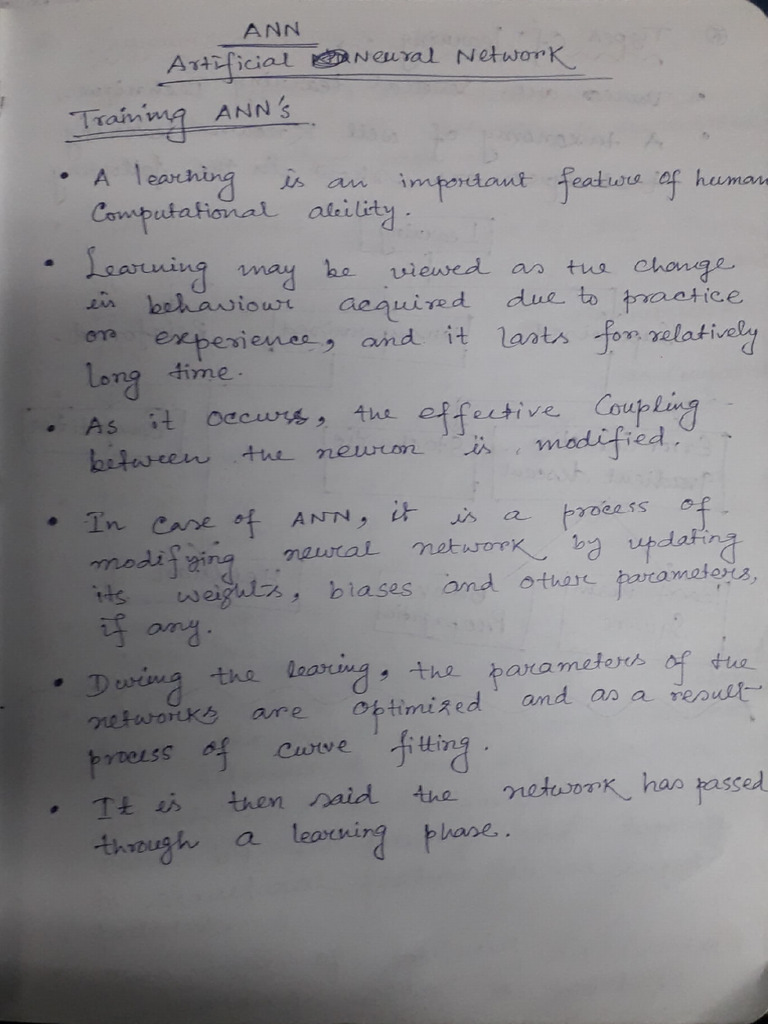 ANN
Artificial Neural Network
Training ANN's
• A learning is an important feature of human
Computational ability.
• Learning may be viewed as the change
in behaviour acquired due to practice
or experience, and it lasts for relatively
long time.
• As it occurs, the effective Coupling
between the neuron is modified.
• In case of ANN, it is a process of
modifying neural network by updating
its weights, biases and other parameters,
if any.
• During the learing, the parameters of the
networks are optimized and as a result
process of curve fitting.
• It is then said the network has passed
through a learning phase.